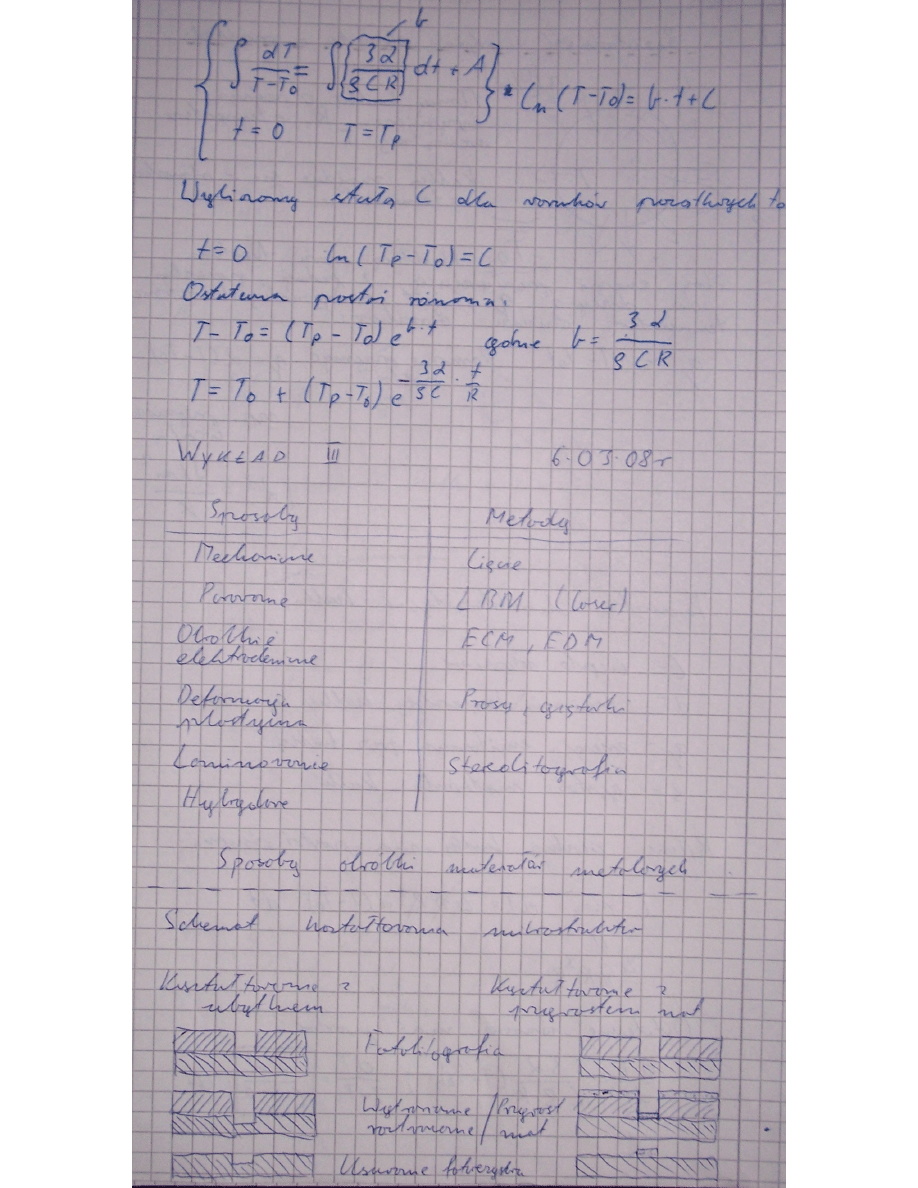 b
∫ dT/(T-T₀) = ∫ [3α/(ρCR)] dt + A
ln (T-T₀) = b·t+C
t=0 T=Tₚ
Wyliczamy stałą C dla warunków początkowych to
t=0 ln(Tₚ-T₀)=C
Ostateczna postać równania:
T-T₀=(Tₚ-T₀)e^(b·t) gdzie b= 3α/(ρCR)
T=T₀+(Tₚ-T₀)e^(-3α/(ρC)·t/R)
WYKŁAD III 6.03.08r
Sposoby Metody
Mechaniczne Cięcie
Parowanie LBM (laser)
Obróbka ECM, EDM
elektrochemiczne
Deformacja Prasy,
plastyczna
Laminowanie Stereolitografia
Hybrydowe
Sposoby obróbki materiałów metalowych
Schemat kształtowania mikrostruktur
Kształtowanie z Kształtowanie z
ubytkiem przyrostem mat
Fotolitografia
Wytrawianie / Przyrost
/ mat
Usuwanie fotorezystu